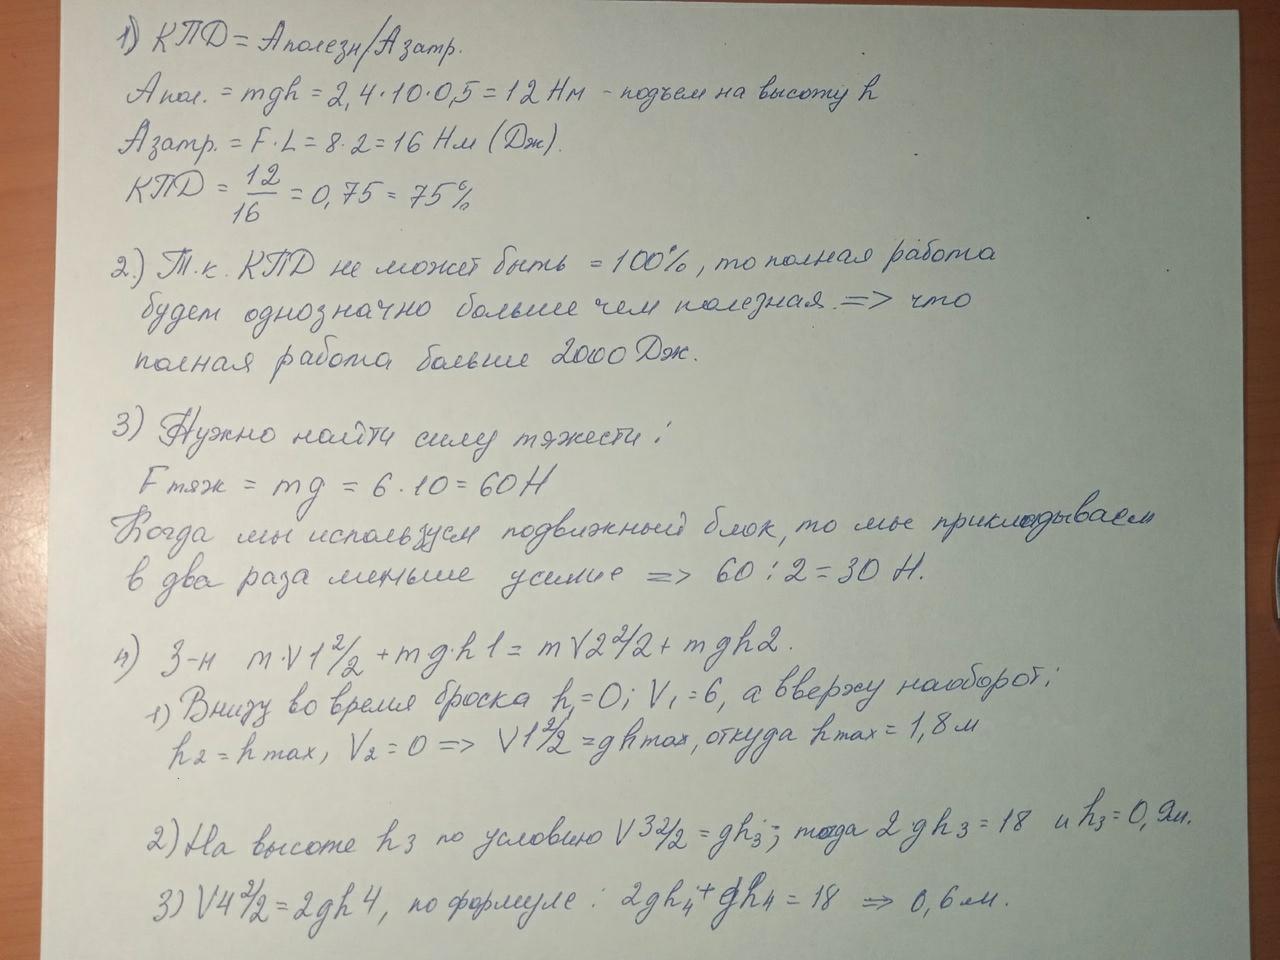 1) КПД = Аполезн/Азатр.
Апол. = mgh = 2,4·10·0,5 = 12 Нм - подъем на высоту h
Азатр. = F·L = 8·2 = 16 Нм (Дж).
КПД = 12/16 = 0,75 = 75%
2.) Т.к. КПД не может быть = 100%, то полная работа
будет однозначно больше чем полезная. => что
полная работа больше 2000 Дж.
3) Нужно найти силу тяжести:
Fтяж = mg = 6·10 = 60 Н
Когда мы используем подвижный блок, то мы прикладываем
в два раза меньше усилие => 60 : 2 = 30 Н.
4) З-н m·V1²/2 + mg·h1 = mV2²/2 + mgh2.
1) Внизу во время броска h₁=0; V₁=6, а вверху наоборот:
h₂ = hmax, V₂ = 0 => V1²/2 = ghmax, откуда hmax = 1,8 м
2) На высоте h3 по условию V3²/2 = gh₃; тогда 2gh3 = 18 и h₃ = 0,9м.
3) V4²/2 = 2gh4, по формуле: 2gh₄ + gh₄ = 18 => 0,6 м.